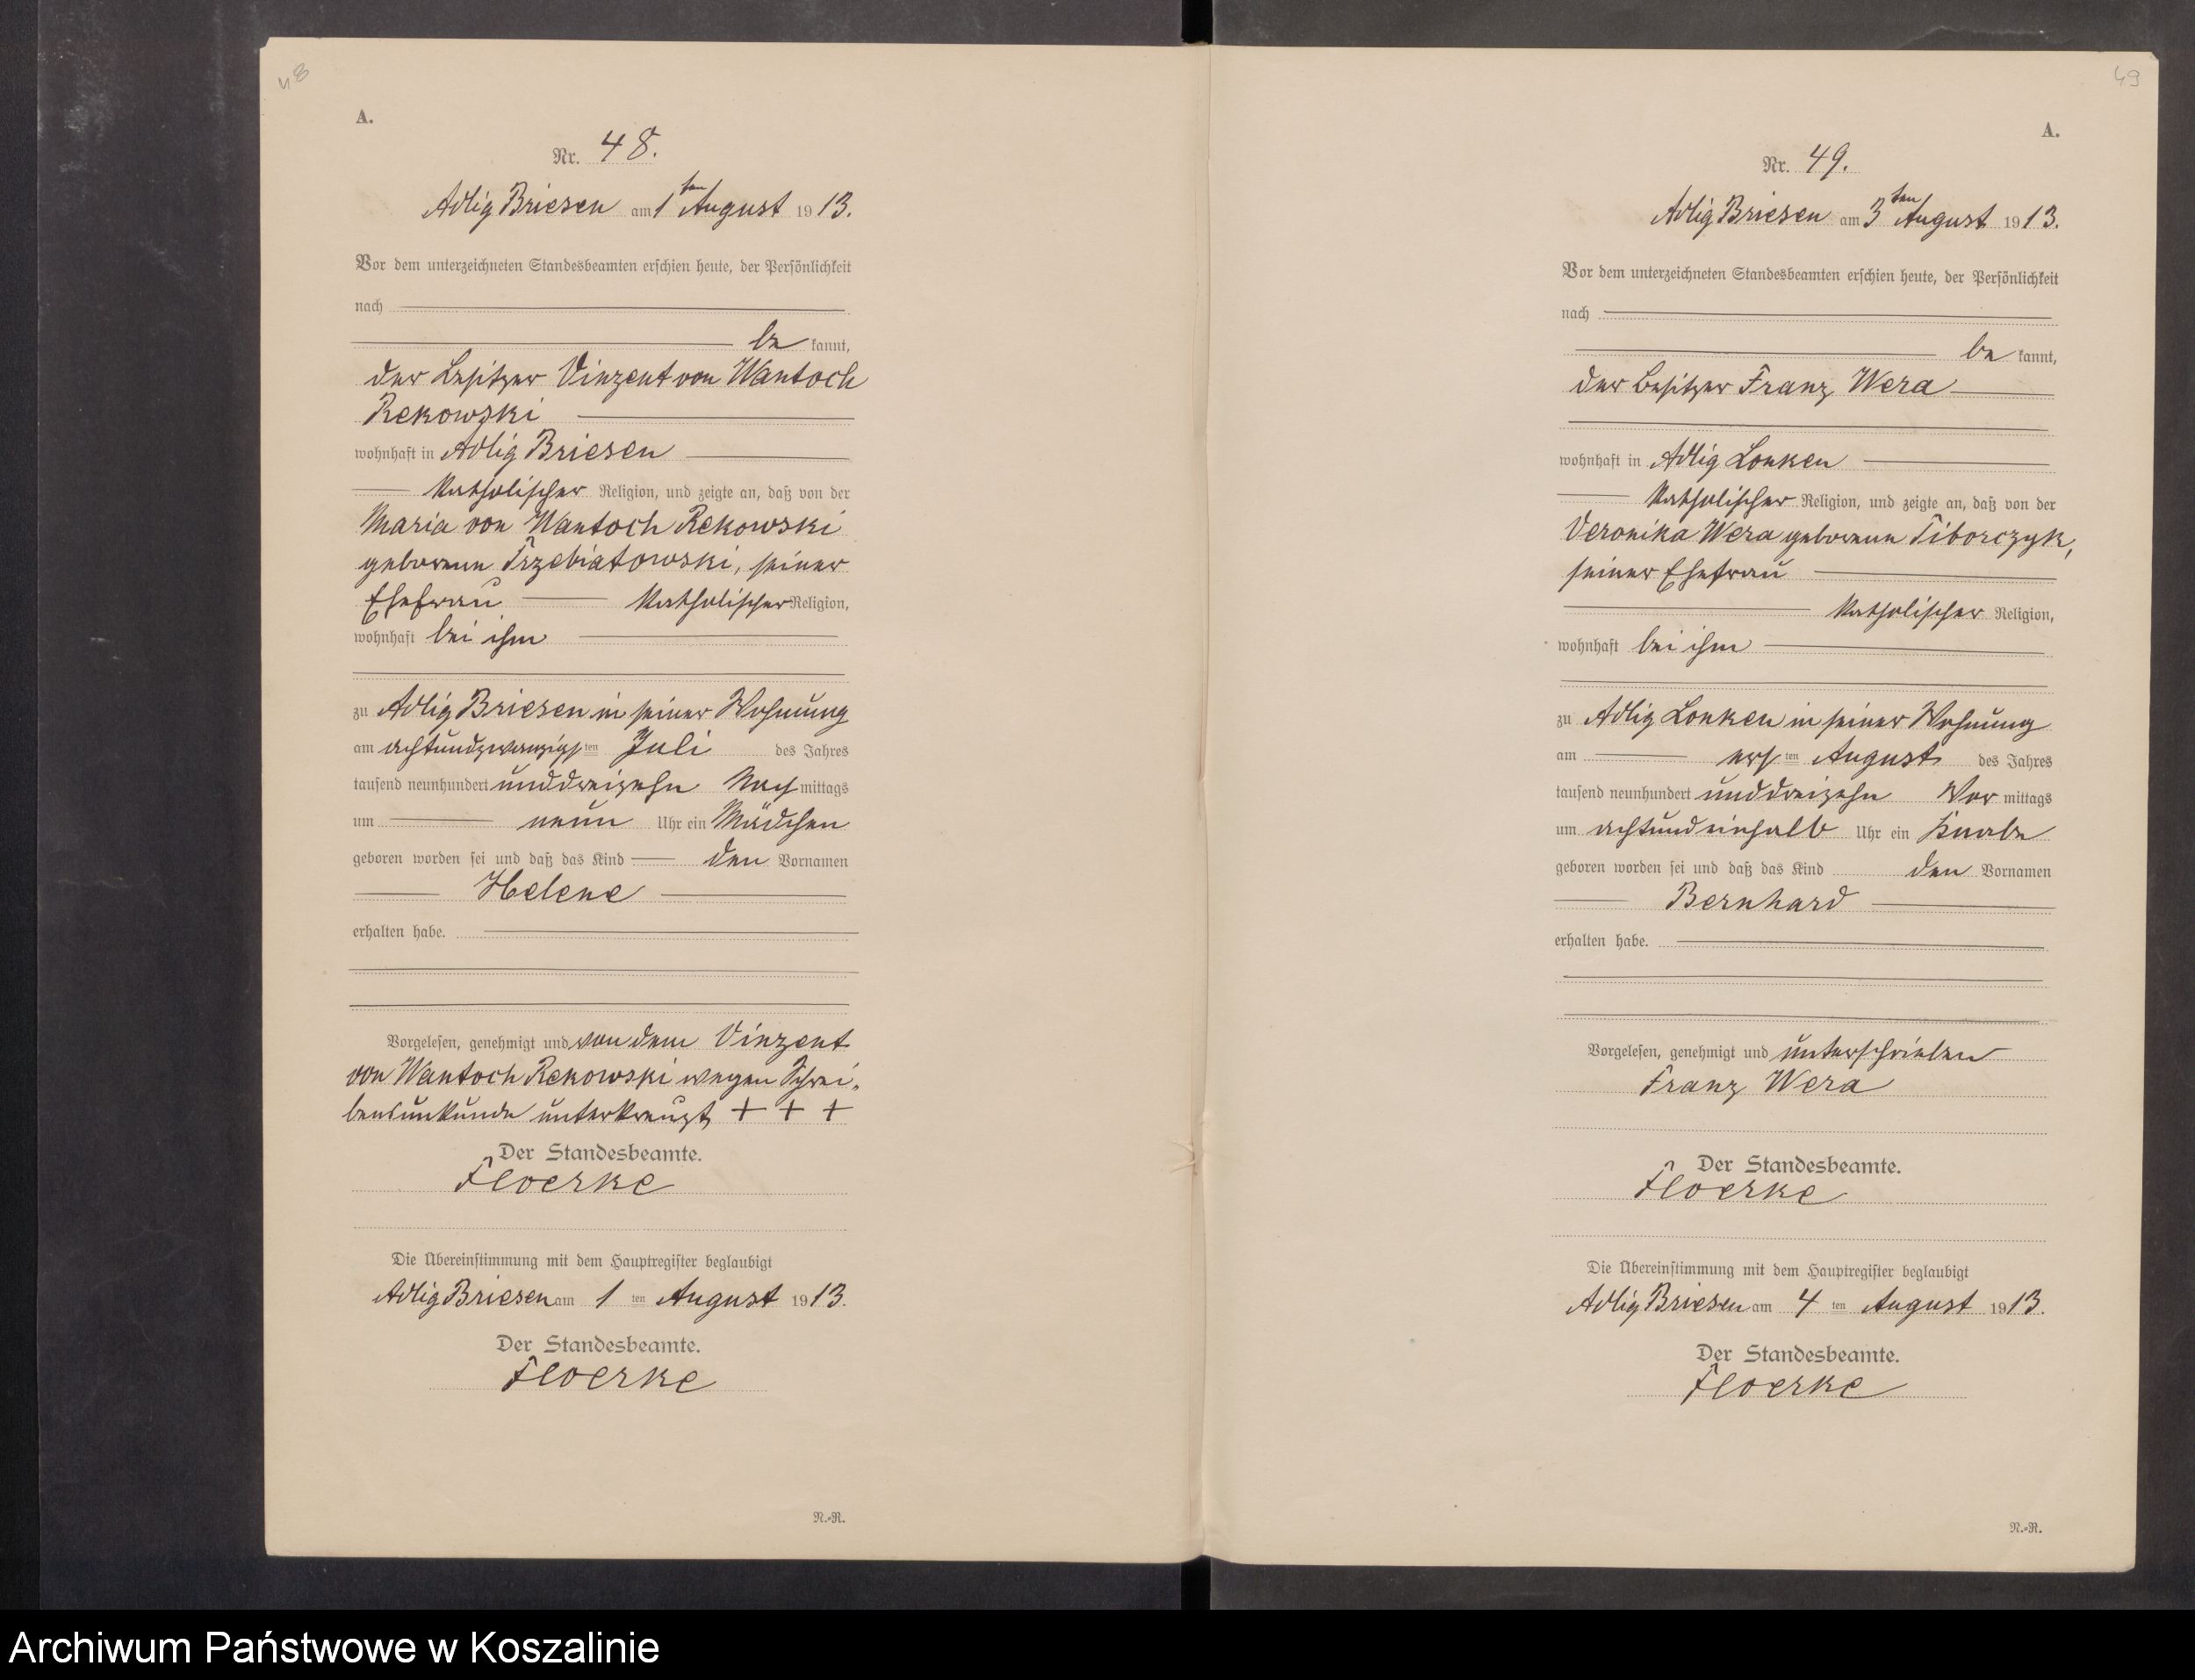 48
A.
Nr. 48.
Adlig Briesen am 1ten August 1913.
Vor dem unterzeichneten Standesbeamten erschien heute, der Persönlichkeit
nach
be kannt,
der Besitzer Vinzent von Wantoch
Rekowski
wohnhaft in Adlig Briesen
katholischer Religion, und zeigte an, daß von der
Maria von Wantoch Rekowski
geborene Trzebiatowski, seiner
Ehefrau katholischer Religion,
wohnhaft bei ihm
zu Adlig Briesen in seiner Wohnung
am achtundzwanzigsten Juli des Jahres
tausend neunhundert unddreizehn Nachmittags
um neun Uhr ein Mädchen
geboren worden sei und daß das Kind den Vornamen
Helene
erhalten habe.
Vorgelesen, genehmigt und von dem Vinzent
von Wantoch Rekowski wegen Schrei-
bensunkunde unterkreuzt + + +
Der Standesbeamte.
Floerke
Die Übereinstimmung mit dem Hauptregister beglaubigt
Adlig Briesen am 1 ten August 1913.
Der Standesbeamte.
Floerke
N.-R.
49
A.
Nr. 49.
Adlig Briesen am 3ten August 1913.
Vor dem unterzeichneten Standesbeamten erschien heute, der Persönlichkeit
nach
be kannt,
der Besitzer Franz Wera
wohnhaft in Adlig Lonken
katholischer Religion, und zeigte an, daß von der
Veronika Wera geborene Tiborczyk,
seiner Ehefrau
katholischer Religion,
wohnhaft bei ihm
zu Adlig Lonken in seiner Wohnung
am ersten August des Jahres
tausend neunhundert unddreizehn Vormittags
um achtundeinhalb Uhr ein Knabe
geboren worden sei und daß das Kind den Vornamen
Bernhard
erhalten habe.
Vorgelesen, genehmigt und unterschrieben
Franz Wera
Der Standesbeamte.
Floerke
Die Übereinstimmung mit dem Hauptregister beglaubigt
Adlig Briesen am 4 ten August 1913.
Der Standesbeamte.
Floerke
N.-R.
Archiwum Państwowe w Koszalinie